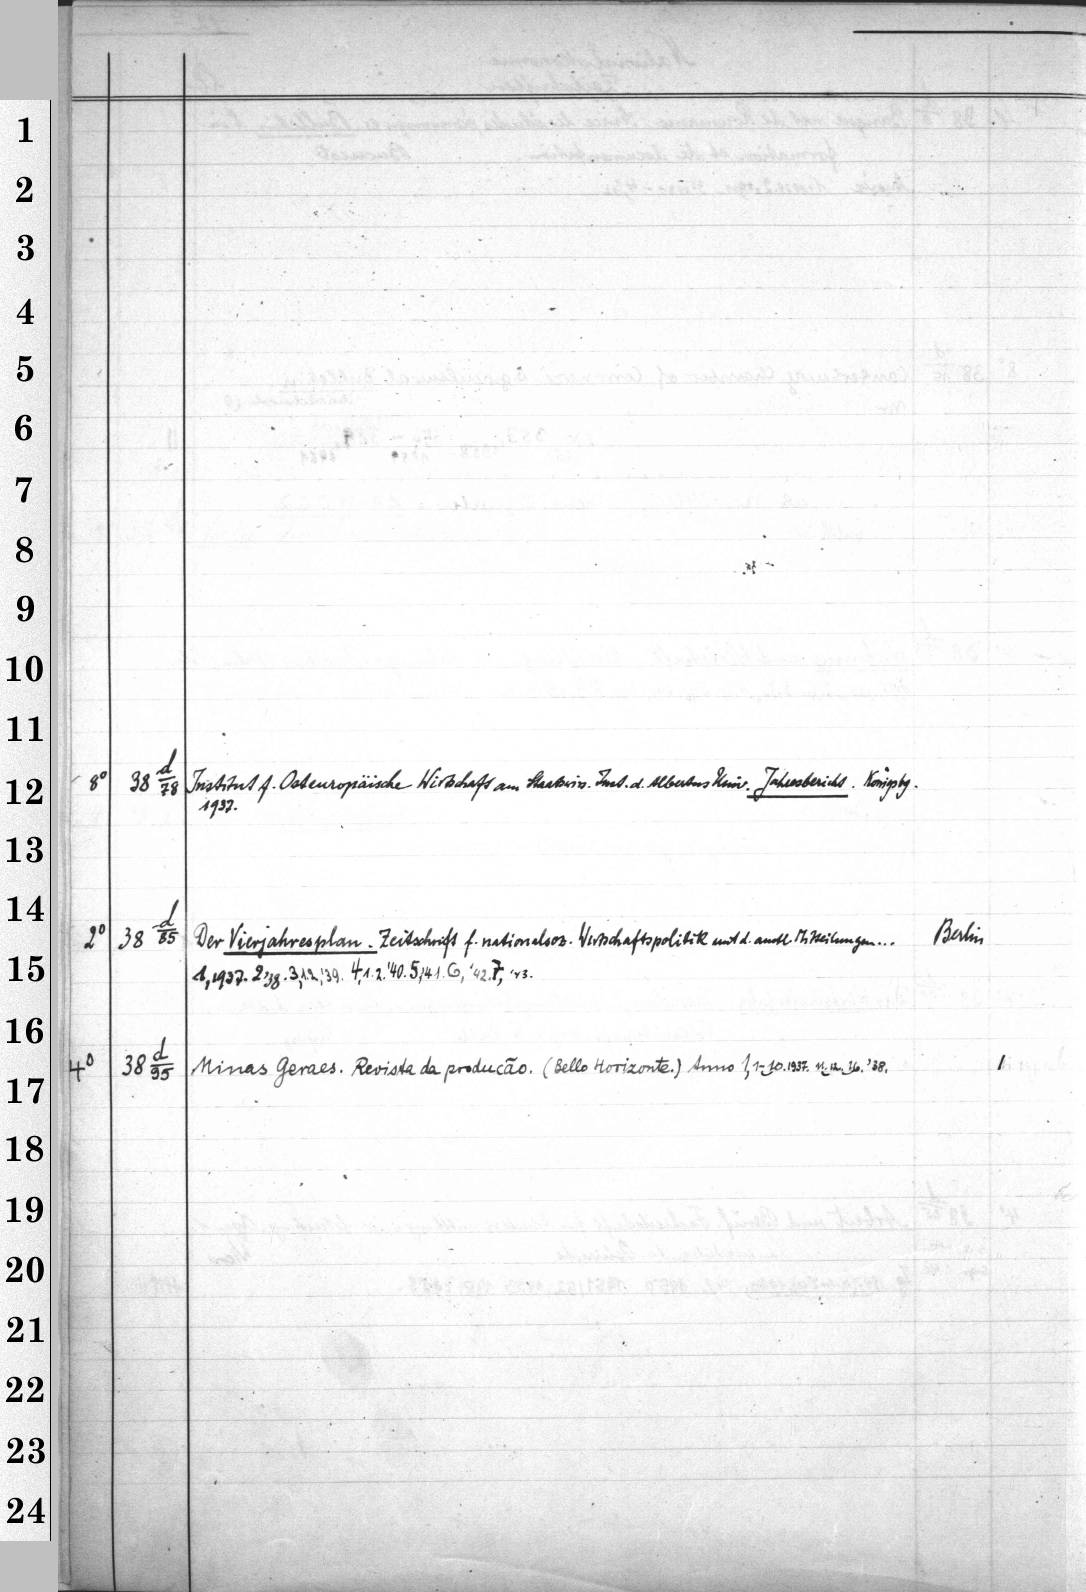 1
2
3
4
5
6
7
8
9
10
11
12
13
14
15
16
17
18
19
20
21
22
23
24
8° 38 d/78 Institut f. Osteuropäische Wirtschaft am Staatswiss. Inst. d. Albertus Univ. Jahresbericht. Königsbg.
1937.
2° 38 d/85 Der Vierjahresplan. Zeitschrift f. nationalsoz. Wirtschaftspolitik mit d. amtl. Mitteilungen... Berlin
1,1937. 2,'38. 3,1.2,'39. 4,1.2.'40. 5,'41. 6,'42. 7,'43.
4° 38 d/95 Minas Geraes. Revista da producão. (Bello Horizonte.) Anno 1, 1-10.1937. '38. 1